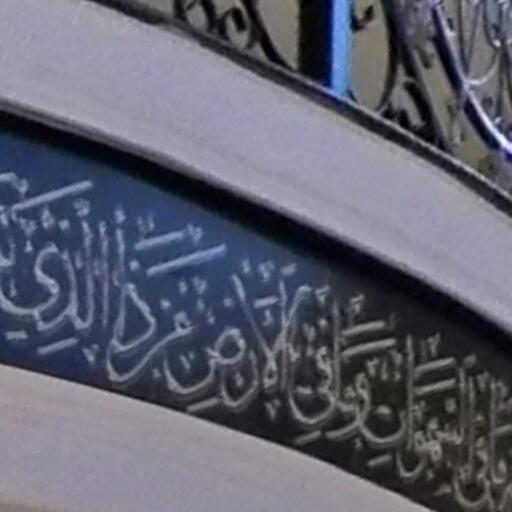 مَا فِي السَّمَاوَاتِ وَمَا فِي الْأَرْضِ مَن ذَا الَّذِي